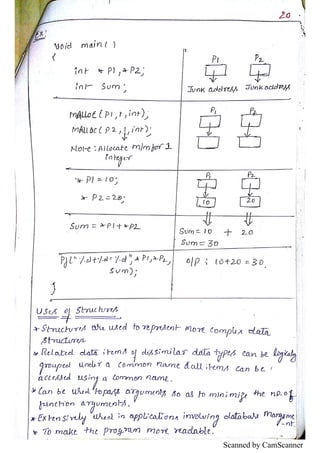 20
Ex:
Void main( )
{
int * P1, * P2;
int Sum;
P1 P2
Junk address Junk address
mAlloc( P1, 1, int);
mAlloc( P2, 1, int);
Note : Allocate m/m for 1
Integer
P1 P2
* P1 = 10;
* P2 = 20;
P1 P2
10 20
Sum = * P1 + * P2
Sum = 10 + 20
Sum = 30
Pf(" %d+%d= %d", * P1, * P2,
Sum);
}
o/p : 10+20 = 30
Uses of Structures
* Structures are used to represent more complex data
structures
* Related data items of dissimilar data types can be logically
grouped under a common name & all items can be
accessed using a common name.
* Can be used to pass arguments so as to minimize the no. of
function arguments.
* Extensively used in applications involving database Manageme
-nt.
* To make the program more readable.
Scanned by CamScanner